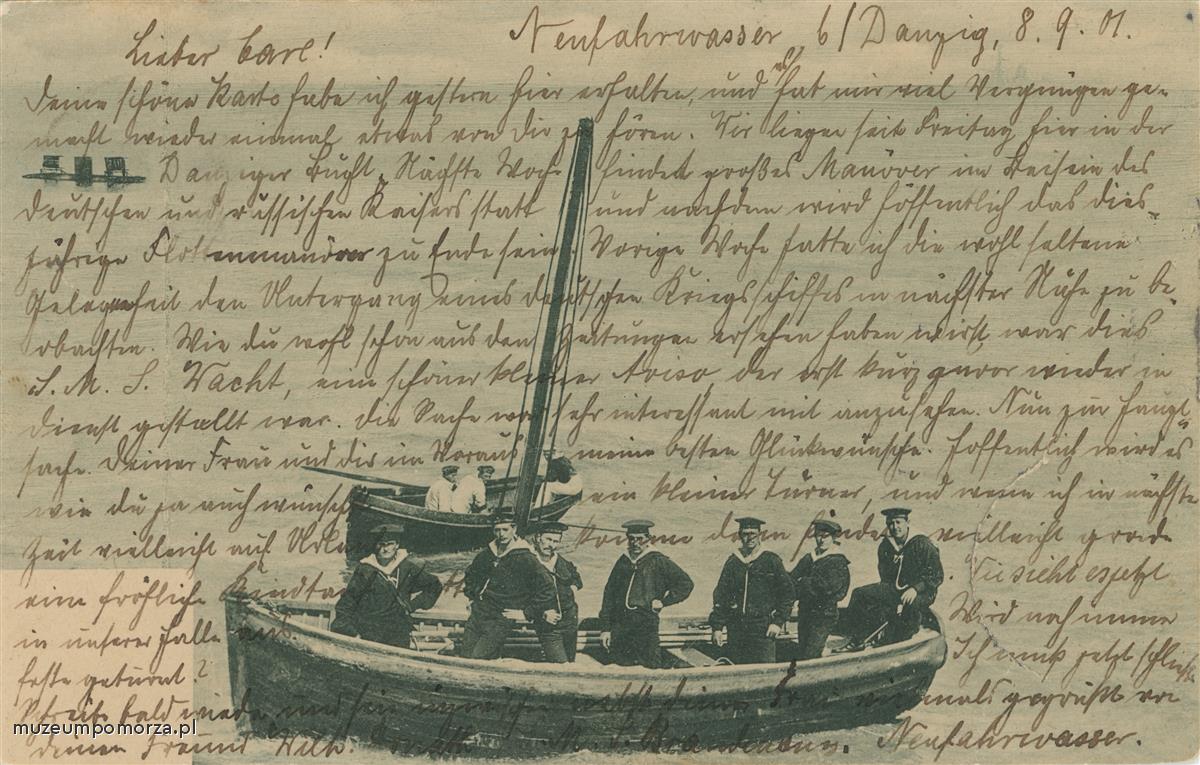 Neufahrwasser b/Danzig, 8. 9. 01.
Lieber Carl!
Deine schöne Karte habe ich gestern hier erhalten, und es hat mir viel Vergnügen ge-
macht wieder einmal etwas von dir zu hören. Wir liegen seit Freitag hier in der
Danziger Bucht. Nächste Woche findet großes Manöver im Beisein des
deutschen und russischen Kaisers statt und nachdem wird hoffentlich das dies-
jährige Flottenmanöver zu Ende sein. Vorige Woche hatte ich die wohl seltene
Gelegenheit den Untergang eines deutschen Kriegsschiffes in nächster Nähe zu be-
obachten. Wie du wohl schon aus den Zeitungen ersehen haben wirst war dies
S. M. S. Wacht, ein schöner kleiner Aviso, der erst kurz zuvor wieder in
dienst gestellt war. Die Sache war sehr interessant mit anzusehen. Nun zur Haupt-
sache. Deiner Frau und dir im Voraus meine besten Glückwünsche. Hoffentlich wird es
wie du ja auch wünscht ein kleiner Turner, und wenn ich in nächster
Zeit vielleicht auf Urlaub komme dann vielleicht grade
eine fröhliche Kindtaufe statt. Wie sieht es jetzt
in unserer Halle aus. Wird noch immer
feste geturnt? Ich muß jetzt schließen
Schreibe bald wieder und sei deiner Frau vielmals gegrüßt von
deinem Freund Wilh. M. S. Brandenburg. Neufahrwasser.
muzeumpomorza.pl